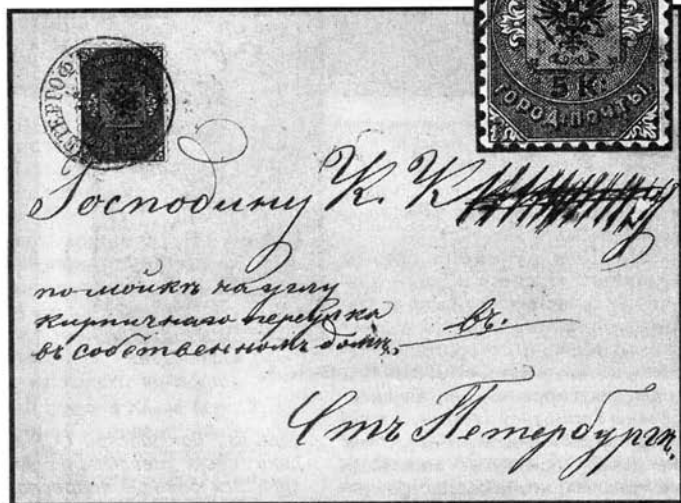 5 К.
ГОРОД. ПОЧТЫ
ПЕТЕРГОФ
Господину К. К
по мойкѣ на углу
кирпичнаго переулка
въ собственномъ домѣ,
въ.
Стъ Петербургѣ.